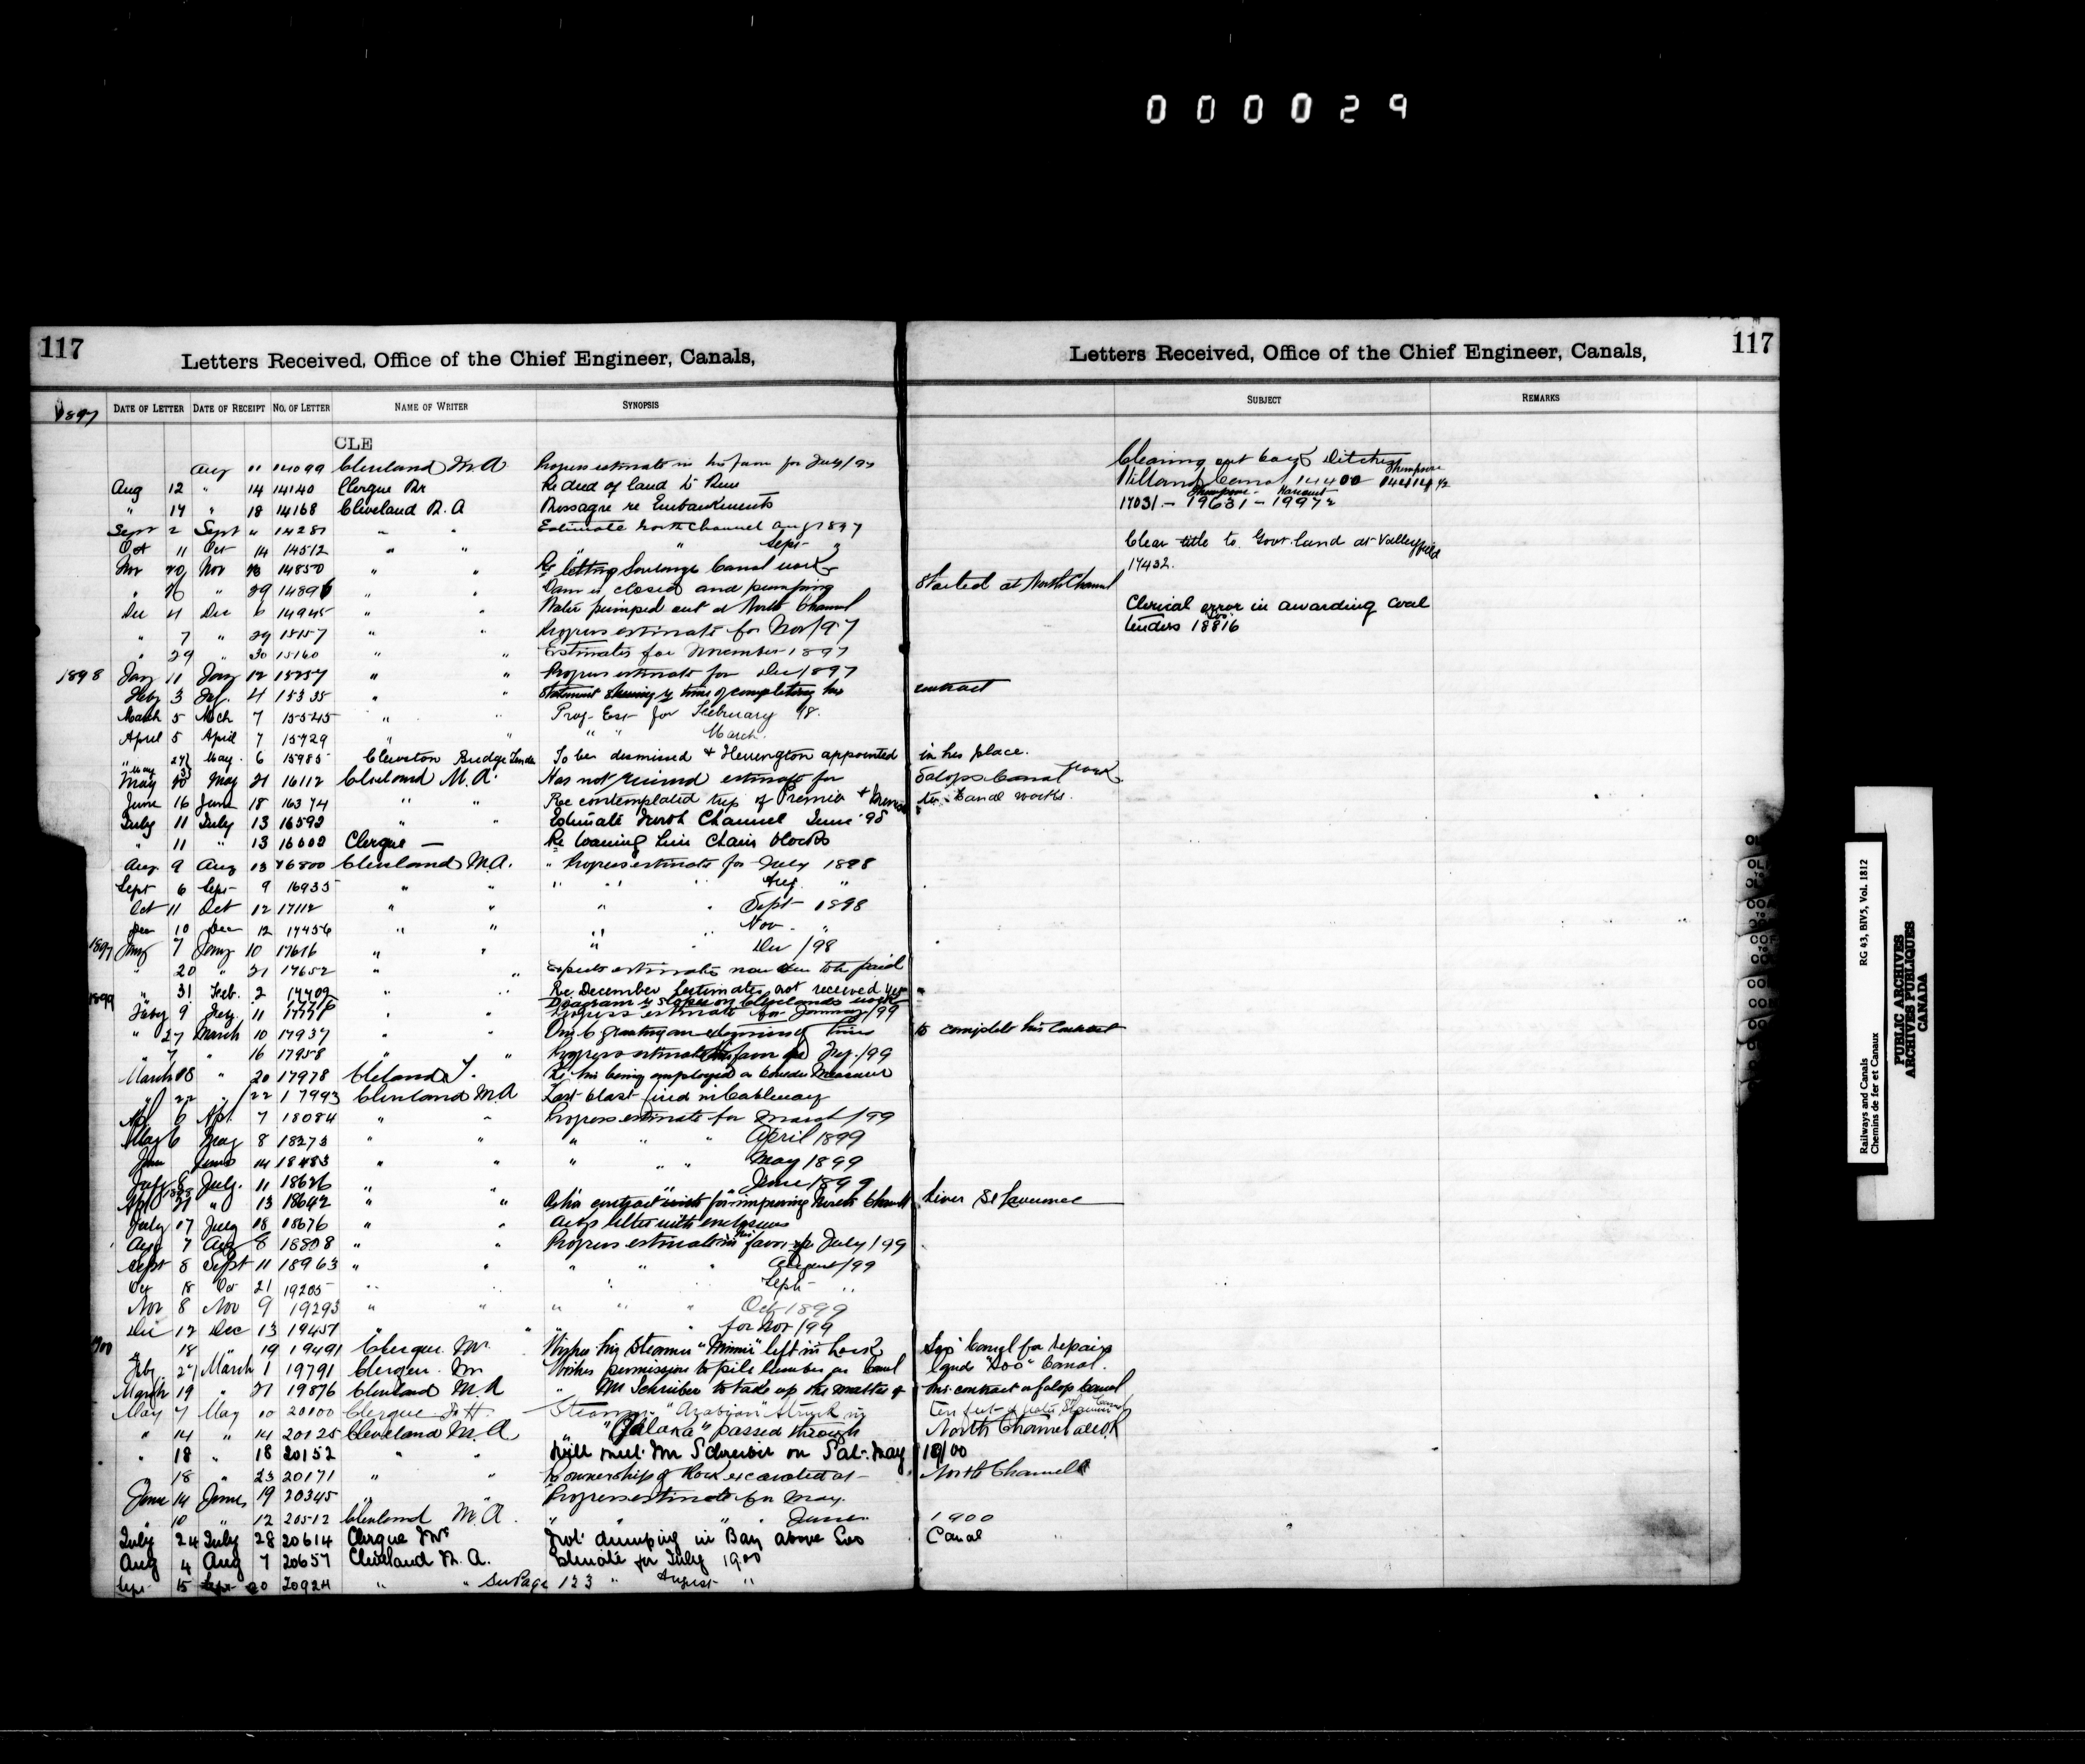 000029
117
Letters Received, Office of the Chief Engineer, Canals,
1897 DATE OF LETTER DATE OF RECEIPT NO. OF LETTER NAME OF WRITER SYNOPSIS
CLE
Aug " 14099 Cleveland M A Progress estimate in his favor for July/97
Aug 12 " 14 14140 Clergue Mr Re deed of land to
" 17 " 18 14168 Cleveland M. A Message re Embankments
Sept 2 Sept " 14281 " " Estimate North Channel Aug 1897
Oct 11 Oct 14 14512 " " " Sept "
Nov 20 Nov 14850 " " Re letting Soulange Canal work
" 26 " 29 14896 " " Dam is closed and pumping Started at North Channel
Dec 4 Dec 6 14945 " " Water pumped out at North Channel
" 7 " 29 15157 " " Progress estimate for Nov/97
" 29 " 30 15160 " " Estimates for November 1897
1898 Jany 11 Jany 12 15257 " " Progress estimate for Dec 1897
Feby 3 Feb. 4 15335 " " Statement shewing time of completing his contract
March 5 Mch 7 15545 " " Prog. Est. for February 98.
April 5 April 7 15729 " " " " March
" 27 May 6 15985 Cleveston Bridge Tender To be dismissed & Herrington appointed in his place.
May 20 May 21 16112 Cleveland M. A. Has not received estimate for Galops Canal work
June 16 June 18 16374 " " Re contemplated trip of Premier & to Canal works.
July 11 July 13 16592 " " Estimate North Channel June '98
" 11 " 13 16602 Clergue — Re loaning him Chain blocks
Aug 9 Aug 13 16800 Cleveland M.A. " Progress estimate for July 1898
Sept 6 Sept 9 16935 " " " " " Aug "
Oct 11 Oct 12 17112 " " " " Sept 1898
Dec 10 Dec 12 17456 " " " " Nov. "
Jany 7 Jany 10 17616 " " " Dec /98
20 " 21 17652 " " Expects estimate now due to be paid
1899 " 31 Feb. 2 " " Re December estimates not received yet
Diagram of slopes on Clevelands work
Feby 9 Feby 11 " " Progress estimate for January/99
" 27 March 10 17937 " " granting an extension of time to complete his Contract
" 7 " 16 17958 " " Progress estimate his favor for Feb./99
March 18 " 20 17978 Cleland J. Re his being employed as Measurer
" 22 " 22 17993 Cleveland M A Last blast fired in Cableway
Apl 6 Apl. 7 18084 " " Progress estimate for March /99
May 6 May 8 18273 " " " " " April 1899
June June 14 18483 " " " " " May 1899
July 8 July. 11 18626 " " " " June 1899
Apl 21 " 13 18642 " " contract for improving North Channel River St Lawrence
July 17 July 18 18676 " " Ackgs letter with enclosures
Aug 7 Aug 8 18808 " " Progress estimate in his favor for July /99
Sept 8 Sept 11 18963 " " " " " August /99
Oct 18 Oct 21 19205 " " " " Sept "
Nov 8 Nov 9 19293 " " " " " Oct 1899
Dec 12 Dec 13 19457 " " " " for Nov /99
1900 " 18 " 19 19491 Clergue Mr. Wishes his Steamer "Minnie" left in lock Soo Canal for repairs
Feby 27 March 1 19791 Clergue. Mr Wishes permission to pile lumber on Canal lands "Soo" Canal.
March 19 " 21 19876 Cleveland M. A " Mr Schreiber to take up the matter of his contract Galop Canal
May 7 May 10 20100 Clergue F. H. Steamer "Arabian" struck in
" 14 " 14 20125 Cleveland M. A "Jalaka" passed through North Channel all O.K
" 18 " 18 20152 " " Will meet Mr Schreiber on Sat. May 18/00
18 " 23 20171 " " Re ownership of Rock excavated at North Channel
June 14 June 19 20345 " " Progress estimate for May.
" 10 " 12 20512 Cleveland M. A. " " " June 1900
July 24 July 28 20614 Clergue Mr Not dumping in Bay above Soo Canal
Aug 4 Aug 7 20657 Cleveland M. A. Estimate for July 1900
Sept 15 Sept 20 20924 " " See Page 123 " August "
117
Letters Received, Office of the Chief Engineer, Canals,
SUBJECT REMARKS
Clearing out back Ditches
Welland Canal 14400
17031 - 19631 - 19972
Clear title to Govt. land at Valleyfield
17432.
Clerical error in awarding coal
tenders 18816
Railways and Canals RG 43, BIV5, Vol. 1812
Chemins de fer et Canaux
PUBLIC ARCHIVES
ARCHIVES PUBLIQUES
CANADA